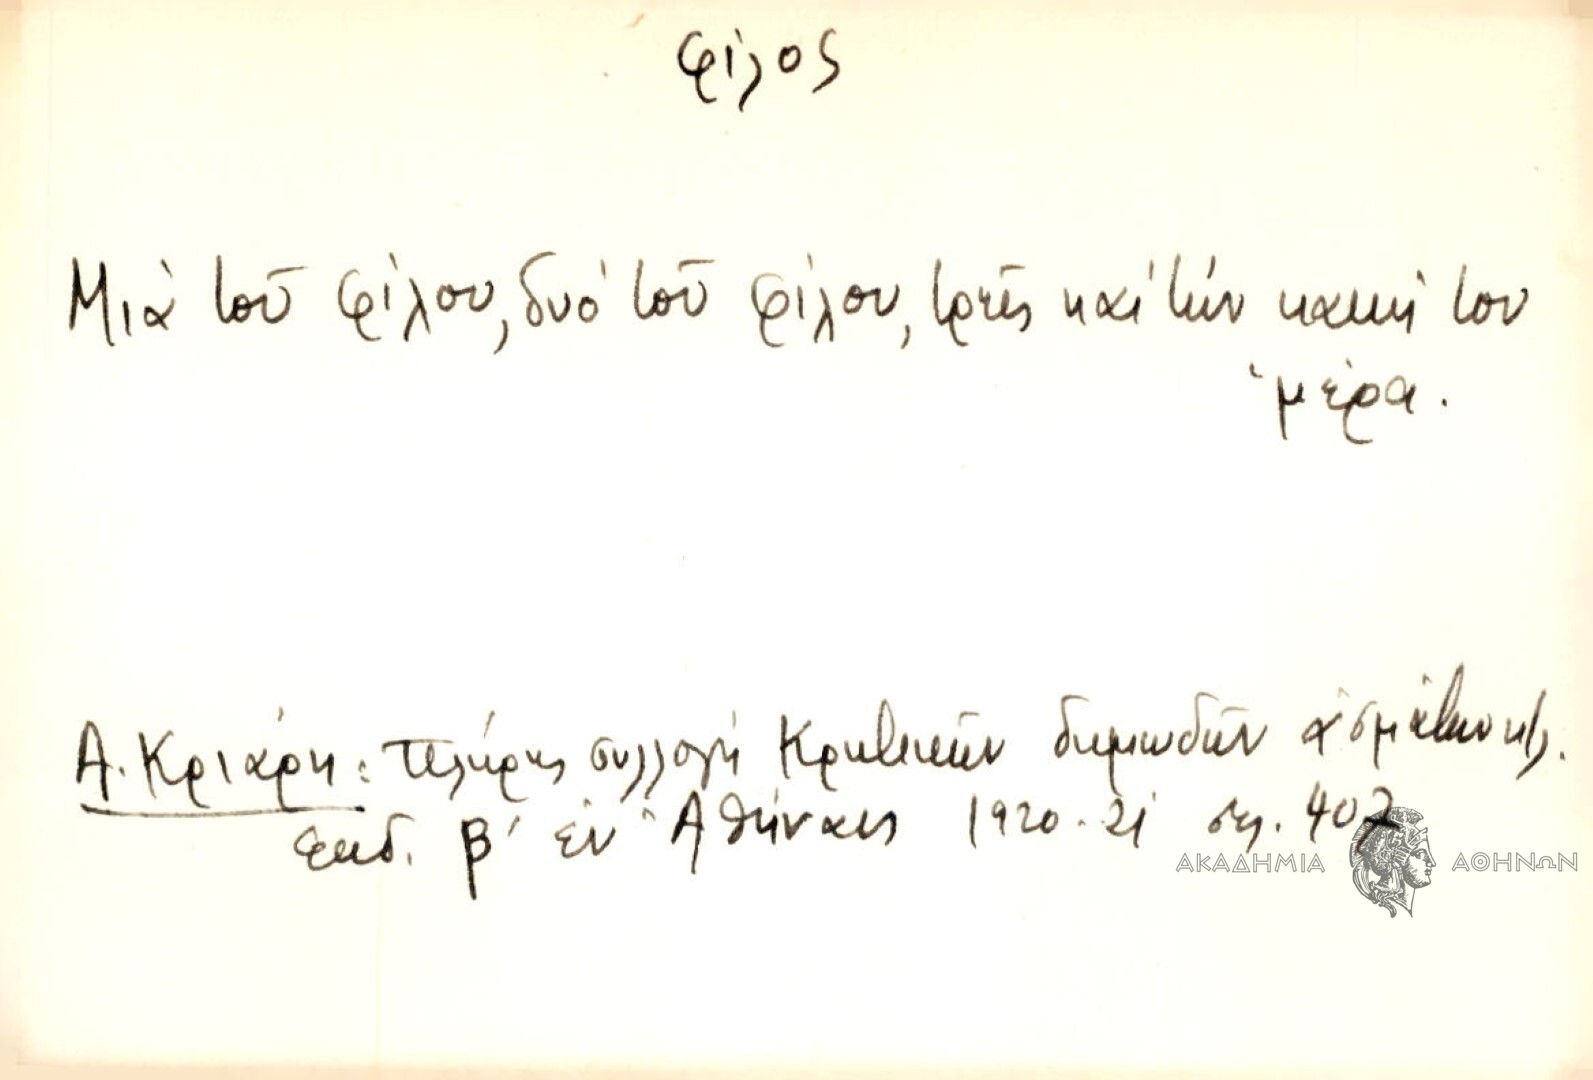 φίλος
Μιὰ τοῦ φίλου, δυό τοῦ φίλου, τρεῖς καί τήν κακή του
‛μέρα.
Α. Κριάρη: Πλήρης συλλογή Κρητικῶν δημωδῶν ἀσμάτων κτλ.
ἐκδ. β' ἐν Ἀθήναις 1920-21 σελ. 407
ΑΚΑΔΗΜΙΑ ΑΘΗΝΩΝ